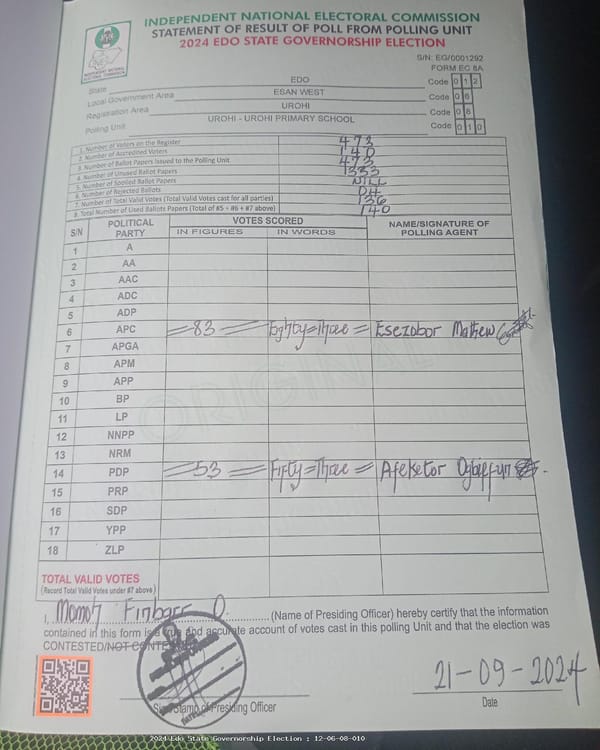 INDEPENDENT NATIONAL ELECTORAL COMMISSION
STATEMENT OF RESULT OF POLL FROM POLLING UNIT
2024 EDO STATE GOVERNORSHIP ELECTION
S/N: EG/0001292
FORM EC 8A
State EDO Code 012
Local Government Area ESAN WEST Code 06
Registration Area UROHI Code 08
Polling Unit UROHI - UROHI PRIMARY SCHOOL Code 010
1. Number of Voters on the Register 473
2. Number of Accredited Voters 140
3. Number of Ballot Papers Issued to the Polling Unit 473
4. Number of Unused Ballot Papers 333
5. Number of Spoiled Ballot Papers NILL
6. Number of Rejected Ballots 04
7. Number of Total Valid Votes (Total Valid Votes cast for all parties) 136
8. Total Number of Used Ballots Papers (Total of #5 + #6 + #7 above) 140
S/N POLITICAL PARTY VOTES SCORED NAME/SIGNATURE OF POLLING AGENT
IN FIGURES IN WORDS
1 A
2 AA
3 AAC
4 ADC
5 ADP
6 APC =83= Eighty=Three= Esezobor Mathew
7 APGA
8 APM
9 APP
10 BP
11 LP
12 NNPP
13 NRM
14 PDP =53= Fifty=Three= Afeketor
15 PRP
16 SDP
17 YPP
18 ZLP
ORIGINAL
TOTAL VALID VOTES
(Record Total Valid Votes under #7 above)
I, Momoh Finbarr O. (Name of Presiding Officer) hereby certify that the information
contained in this form is a true and accurate account of votes cast in this polling Unit and that the election was
CONTESTED/NOT CONTESTED
21-09-2024
Sign/Stamp of Presiding Officer Date
2024 Edo State Governorship Election : 12-06-08-010